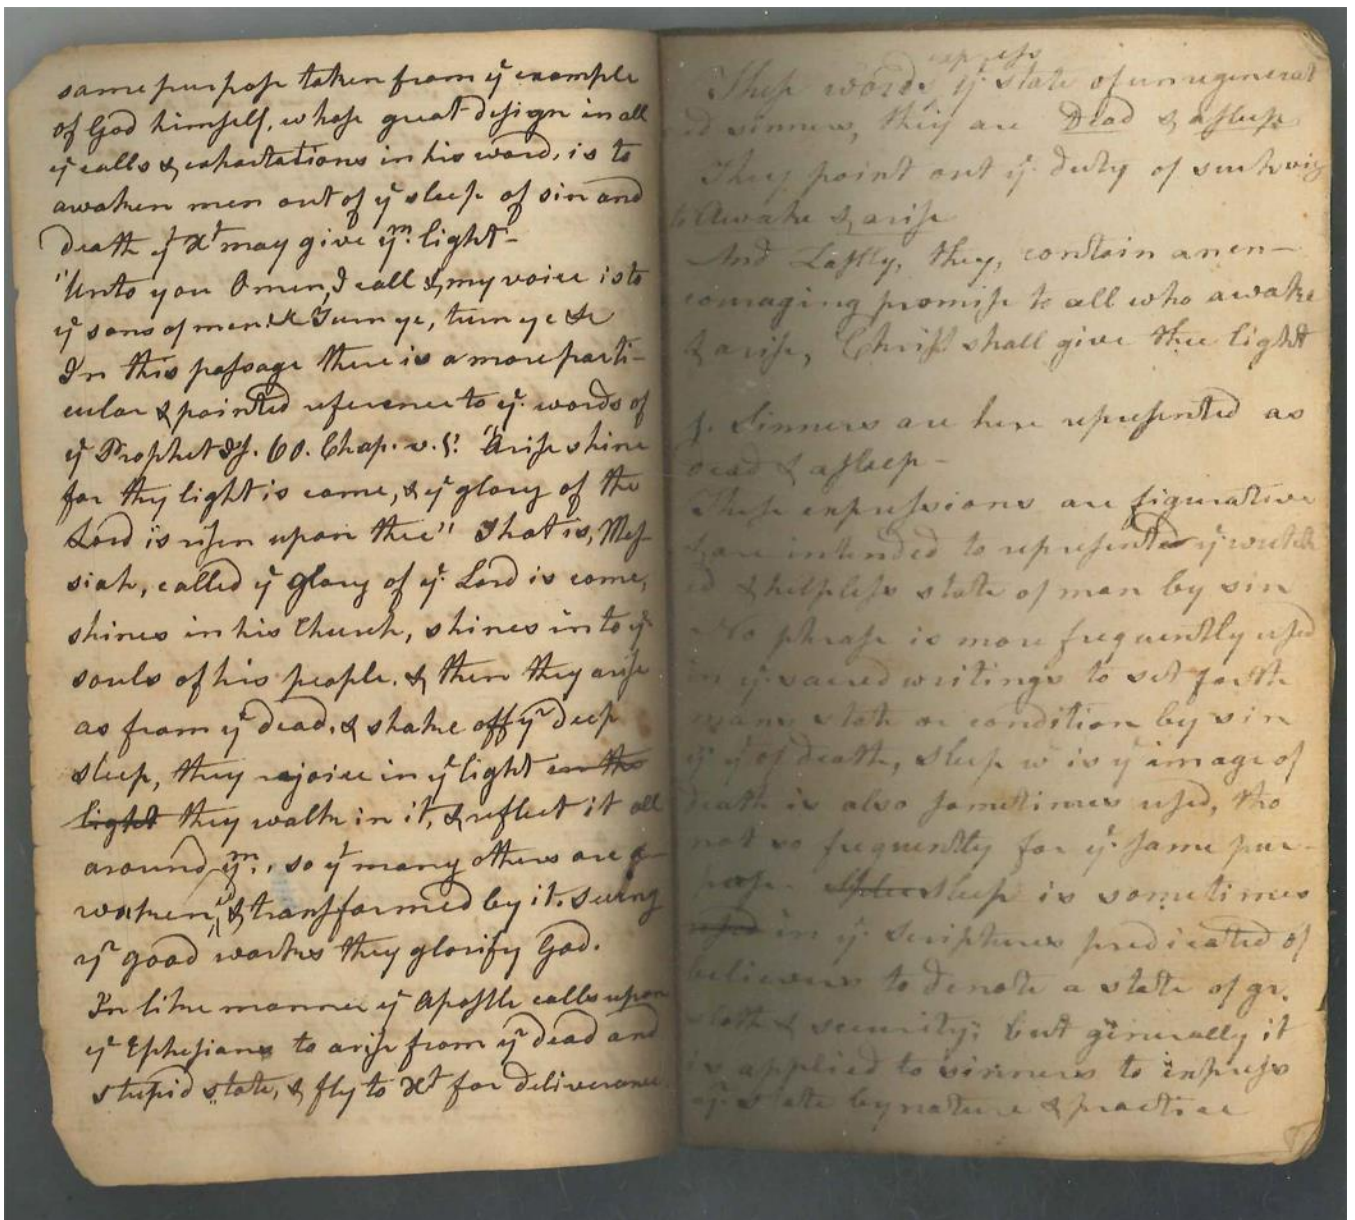 same purpose taken from yͤ example
of God himself, whose great design in all
yͤ calls & exhortations in his word, is to
awaken men out of yͤ sleep of sin and
death yͭ Xͭ may give yͫ light -
"Unto you O men, I call & my voice is to
yͤ sons of men. Turn ye, turn ye &c
In this passage there is a more parti-
cular & pointed reference to yͤ words of
yͤ Prophet Is. 60. Chap. v. 1. "Arise shine
for thy light is come, & yͤ glory of the
Lord is risen upon thee" That is, Mes
siah, called yͤ glory of yͤ Lord is come,
shines in his Church, shines into yͤ
souls of his people. & then they arise
as from yͤ dead, & shake off yͬ deep
sleep, they rejoice in yͤ light on the
light they walk in it, & reflect it all
around yͫ, so yͭ many others are a-
waken'd & transformed by it. seeing
yͬ good works they glorify God.
In like manner yͤ Apostle calls upon
yͤ Ephesians to arise from yͬ dead and
stupid state, & fly to Xͭ for deliverance.
express
These words yͤ state of unregenerat
ed sinners, they are Dead & asleep
They point out yͤ duty of such viz
to Awake & arise
And Lastly, they, contain an en-
couraging promise to all who awake
& arise, Christ shall give thee light
1. Sinners are here represented as
dead & asleep -
These expressions are figurative
& are intended to represented yͤ wretch
ed & helpless state of man by sin
No phrase is more frequently used
in yͤ sacred writings to set forth
mans state or condition by sin
yͭ of death, sleep wͨ is yͤ image of
death is also sometimes used, tho
not so frequently for yͤ same pur-
pose. sleep is sometimes
used in yͤ scriptures predicated of
believers to denote a state of gr.
sloth & security; but generally it
is applied to sinners to express
yͬ state by nature & practice